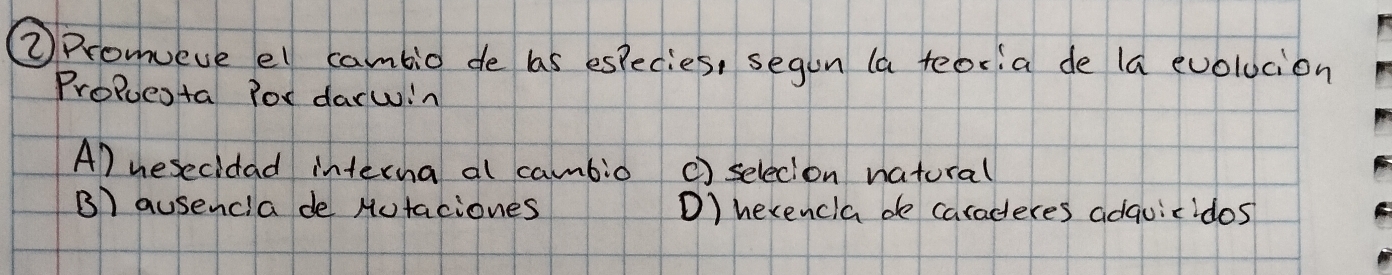 ② Promueve el cambio de las especies, segun la teoria de la evolucion
Propuesta Por darwin
A) nesecidad interna al cambio C) selecion natural
B) ausencia de Mutaciones D) herencia de caracteres adquiridos